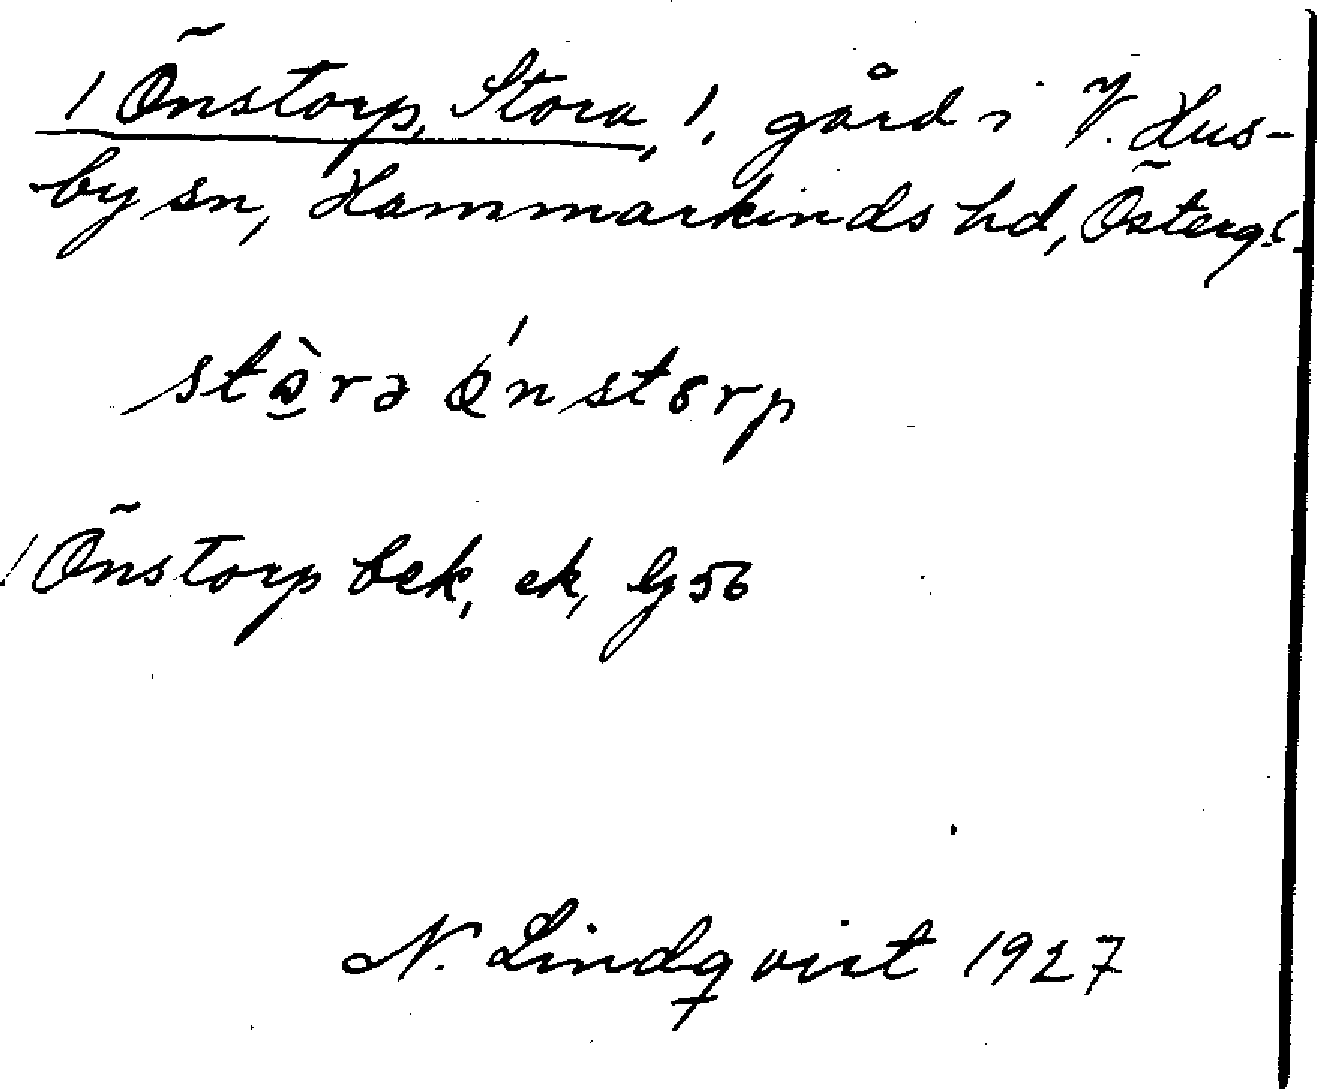 / Önstorp, Stora, /, gård i V. Hus-
by sn, Hammarkinds hd, Östergl.
stòra ǿnstorp
/ Önstorp bek, ek, Gg 56
N. Lindqvist 1927